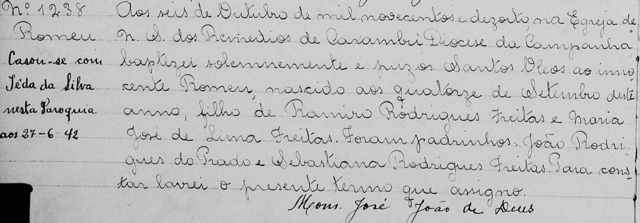 Nº 1238
Romeu
Casou-se com
Iêda da Silva
nesta Paroquia
aos 27-6-42
Aos seis de Outubro de mil novecentos e dezoito, na Egreja de
N. S. dos Remedios de Caxambú Diocese da Campanha
baptizei solemnemente e puz os Santos Oleos ao inno-
cente Romeu, nascido aos quatorze de Setembro deste
anno, filho de Ramiro Rodrigues Freitas e Maria
José de Lima Freitas. Foram padrinhos. João Rodri-
gues do Prado e Sebastiana Rodrigues Freitas. Para cons-
tar lavrei o presente termo que assigno.
Mons. José João de Deus